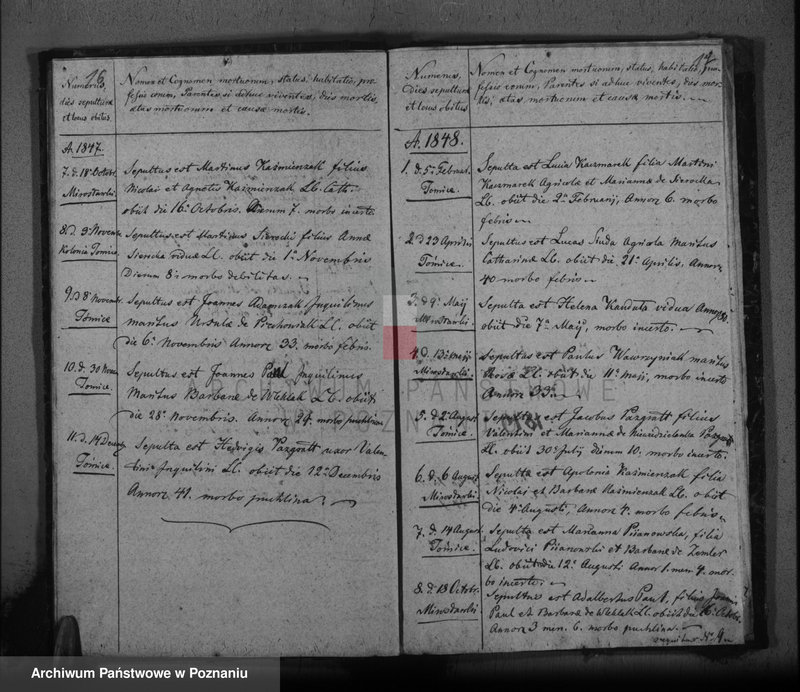 16.
Numerus,
dies sepulturæ
et locus obitus.
Nomen et Cognomen mortuorum, status, habitatio, pro
fessio eorum, Parentes si adhuc viventes, dies mortis,
ætas mortuorum et causæ mortis.
A. 1847.
7. d. 18 Octobr.
Mirosławki.
Sepultus est Martinus Kaźmierzak filius
Nicolai et Agnetis Kaźmierzak Ll. Cath.
obiit die 16 Octobris. 7. morbo incerto.
8. d. 3 Novembr
Kolonia Tomice.
Sepultus est Martinus filius Annæ
viduæ Ll. obiit die 1a Novembris
Dierum 8. morbo debilitas.
9. D 8 Novembr.
Tomice
Sepultus est Joannes Adamczak Inquilinus
maritus Ursulæ de Ll. obiit
die 6a Novembris Annor 33. morbo febris.
10. d. 30 Novem
Tomice.
Sepultus est Joannes Paul Inquilinus
Maritus Barbaræ de Ll. obiit
die 28a Novembris. Annor 24. morbo puchlina
11. d. 14 Decemb
Tomice.
Sepulta est Hedvigis uxor Valen
tini Inquilini Ll. obiit die 12a Decembris
Annor 41. morbo puchlina.
Numerus,
Dies sepulturæ
et locus obitus.
Nomen et Cognomen mortuorum, status, habitatio, pro
fessio eorum, Parentes si adhuc viventes, dies mor
tis, ætas mortuorum et causæ mortis.
A. 1848.
1. d. 5a Februar.
Tomice.
Sepulta est Lucia Kaczmarek filia Martini
Kaczmarek Agricolæ et Mariannæ de
Ll. obiit die 2a Februarij, Annor 6. morbo
febris
2. d 23 Aprilis
Tomice.
Sepultus est Lucas Agricola Maritus
Catharinæ Ll. obiit die 21a Aprilis, Annor
40 morbo febris
3. d 9a Maij
Mirosławki.
Sepulta est Helena vidua Annor
obiit die 7a Maij, morbo incerto.
4. d. 13 Maij
Mirosławki.
Sepultus est Paulus Wawrzyniak maritus
Ll. obiit die 11a Maij, morbo incerto
Annor 33
5. d. 2 August
Tomice.
Sepultus est Jacobus filius
Valentini et Mariannæ de
Ll. obiit 30a Julij dierum 10. morbo incerto.
6. d. 6 August
Mirosławki.
Sepulta est Apolonia Kaźmierzak filia
Nicolai et Barbaræ Kaźmierzak Ll. obiit
die 4a Augusti, Annor 4. morbo febris
7. d. 14 August.
Tomice.
Sepulta est Marianna Pijanowska, filia
Ludovici Pijanowski et Barbaræ de Zemler
Ll. obiit die 12a Augusti Annor 1. men 4. mor
bo incerto.
8. d. 18 Octobr.
Mirosławki.
Sepultus est Adalbertus Paul, filius Joannis
Paul et Barbaræ de Ll. obiit die 16a Octobr.
Annor 3 men. 6. morbo puchlina.
sequitur Nr. 9
ARCHIWUM PAŃSTWOWE
W POZNANIU
Archiwum Państwowe w Poznaniu